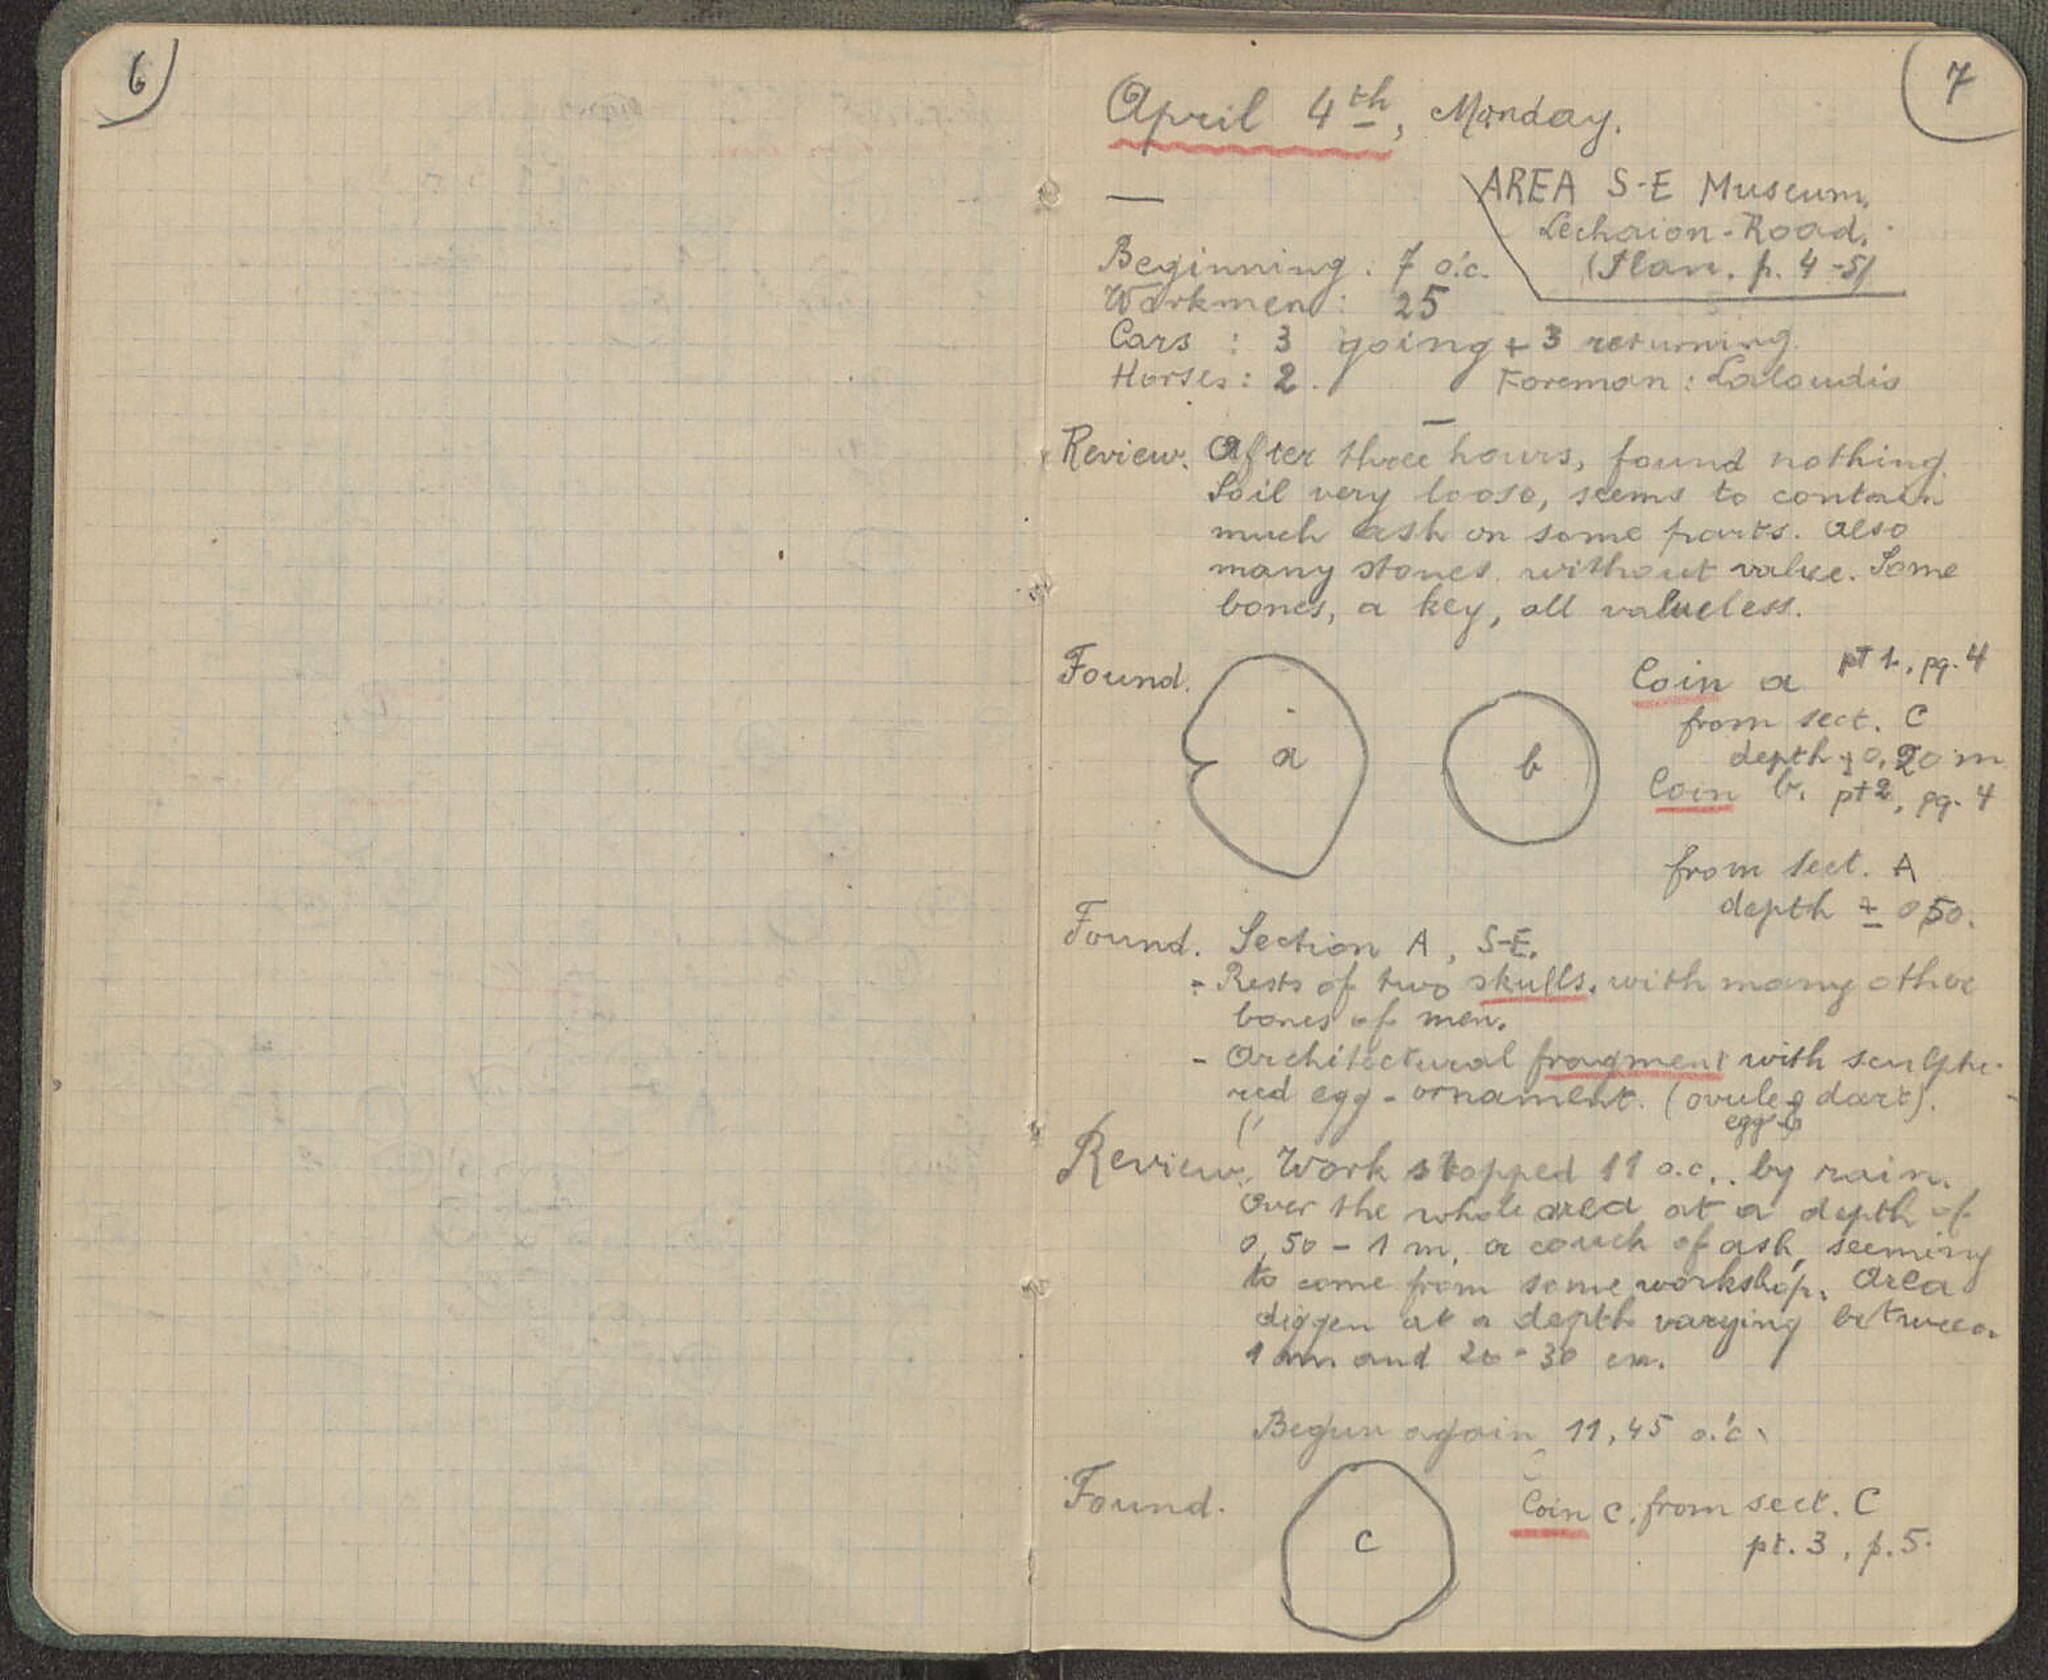 6
7
April 4th, Monday.
AREA S-E Museum.
Lechaion-Road.
(Plan. p. 4-5)
Beginning: 7 o.c.
Workmen: 25
Cars : 3 going + 3 returning.
Horses: 2. Foreman: Laloudis
Review. After three hours, found nothing.
Soil very loose, seems to contain
much ash on some parts. Also
many stones without value. Some
bones, a key, all valueless.
Found.
a
b
Coin a pt 1, pg. 4
from sect. C
depth ± 0,20 m
Coin b. pt 2, pg. 4
from sect. A
depth ± 0,50.
Found. Section A, S-E.
- Rests of two skulls, with many other
bones of men.
- Architectural fragment with sculptu-
red egg-ornament. (ovule & dart).
egg &
Review. Work stopped 11 o.c.. by rain.
Over the whole area at a depth of
0,50 - 1 m, a couch of ash, seeming
to come from some workshop. Area
diggen at a depth varying between
1 m and 20-30 cm.
Begun again 11,45 o.'c.
Found.
c
Coin c. from sect. C
pt. 3, p. 5.